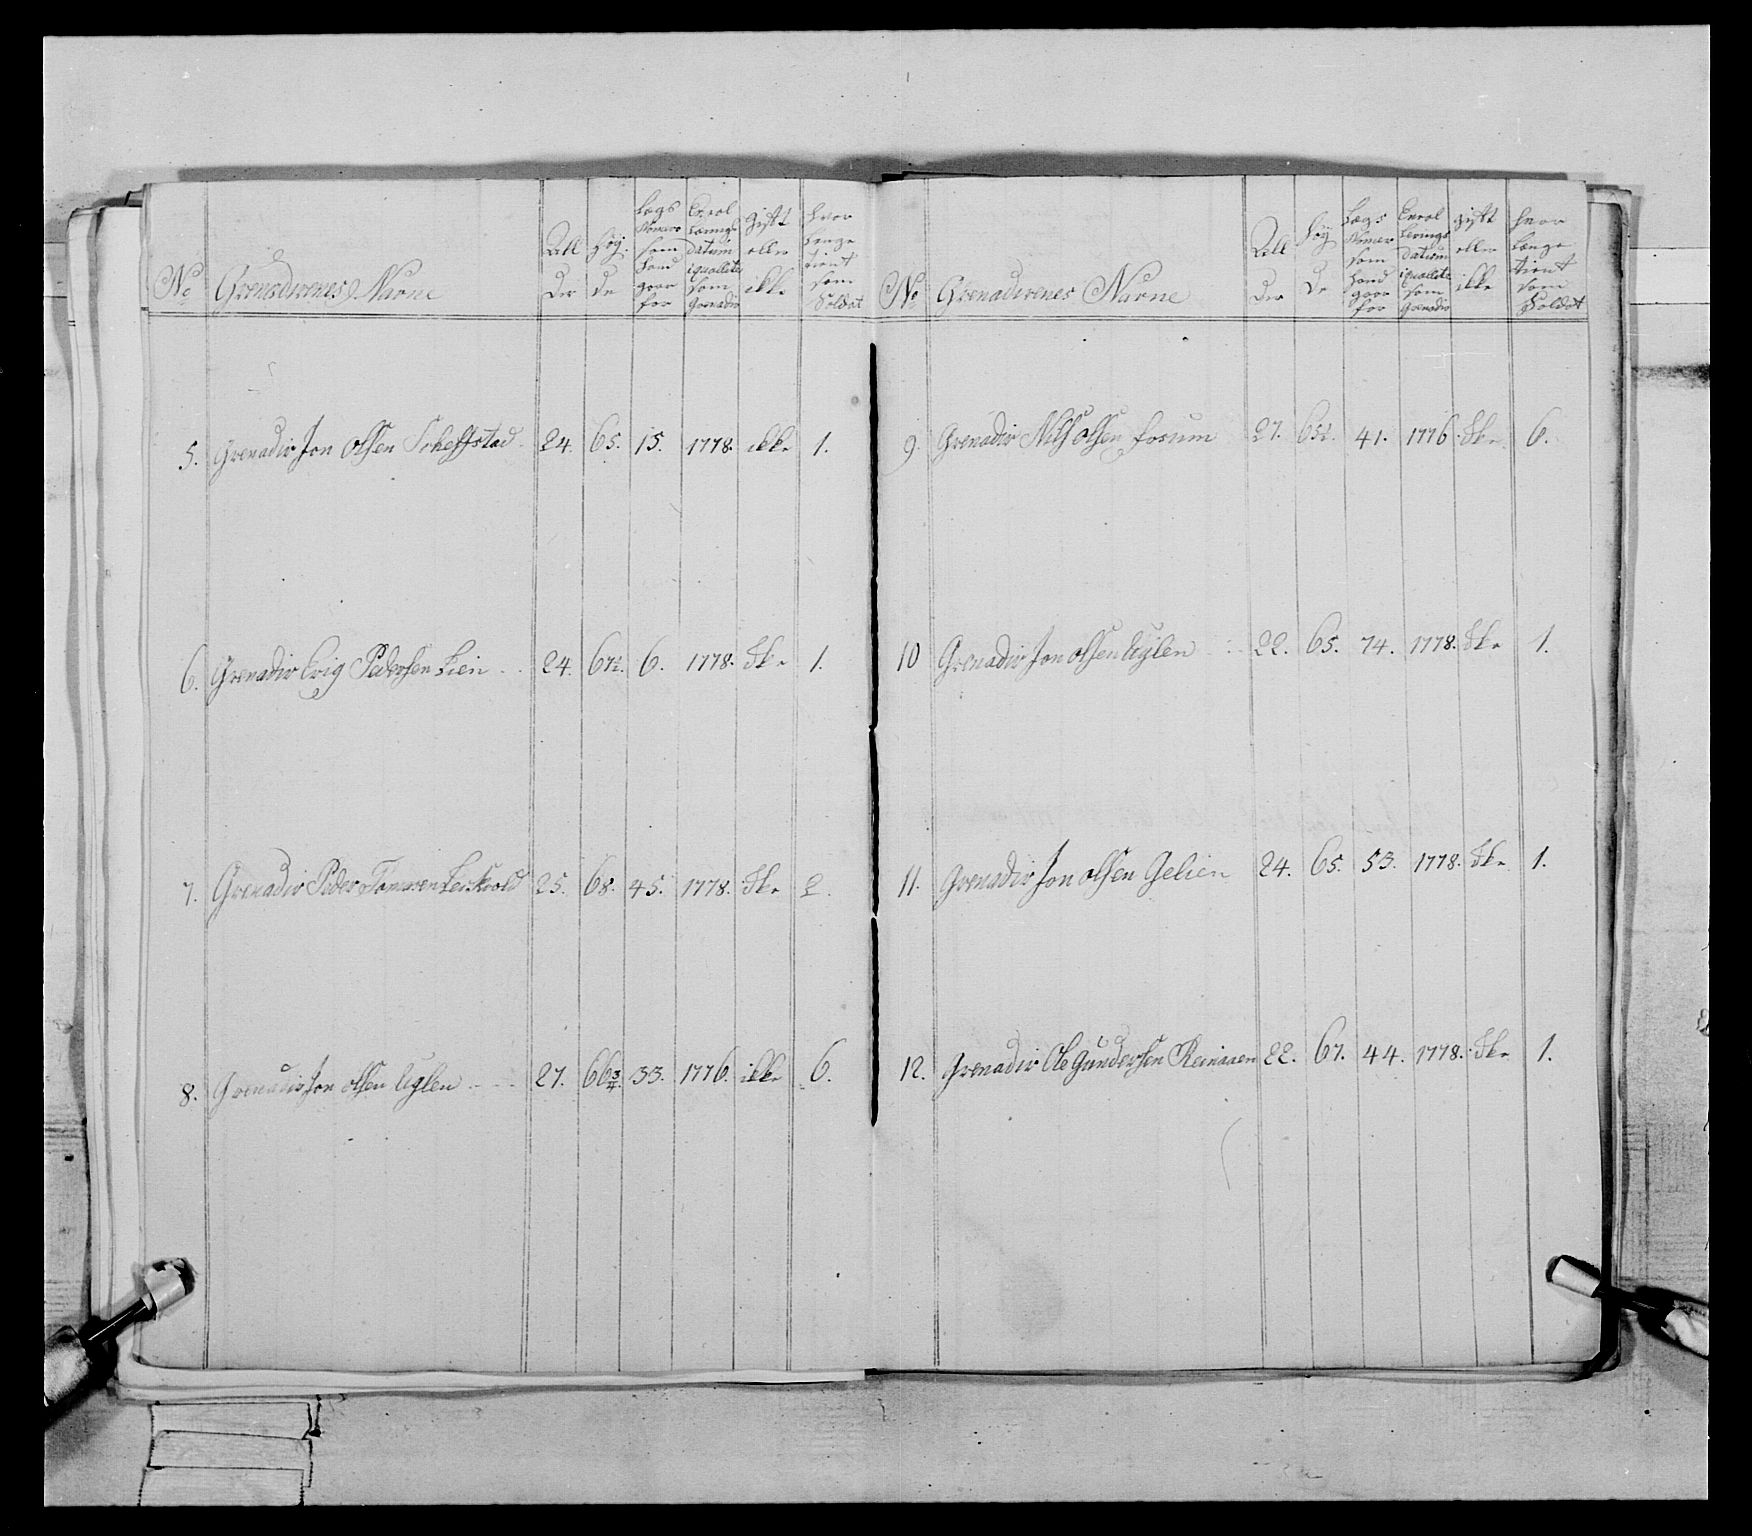 No Grenadirenes Navne All Der Høy De Lægs Nomero som hand goer for Enrol Lerings datum i qualitet som Grenadir gift eller ikke hvor lenge tient som Soldat
5. Grenadir Jon Olsen Scheffstad 24. 65. 15. 1778. ikke 1.
6. Grenadir Erig Pedersen Lien 24. 67½. 6. 1778. Ike 1.
7. Grenadir Peder Leskvold 25. 68. 45. 1778. Ike 2.
8. Grenadir Jon Olsen Uglen 27. 66¾ 33. 1776. ikke 6.
No Grenadirenes Navne All Der Høy De Lægs Nomer som Hand goer for Enrol Lerings datum i qualitet som Grenadir gift eller ikke hvor længe tient som Soldat
9. Grenadir Nils Olsen forum 27. 65½. 41. 1776. Ike. 6.
10 Grenadir Jon Olsen 22. 65. 74. 1778. Ike 1.
11. Grenadir Jon Olsen Gelien 24. 65. 53. 1778. Ike 1.
12. Grenadir Ole Gundersen Reinaaen 22. 67. 44. 1778. Ike 1.